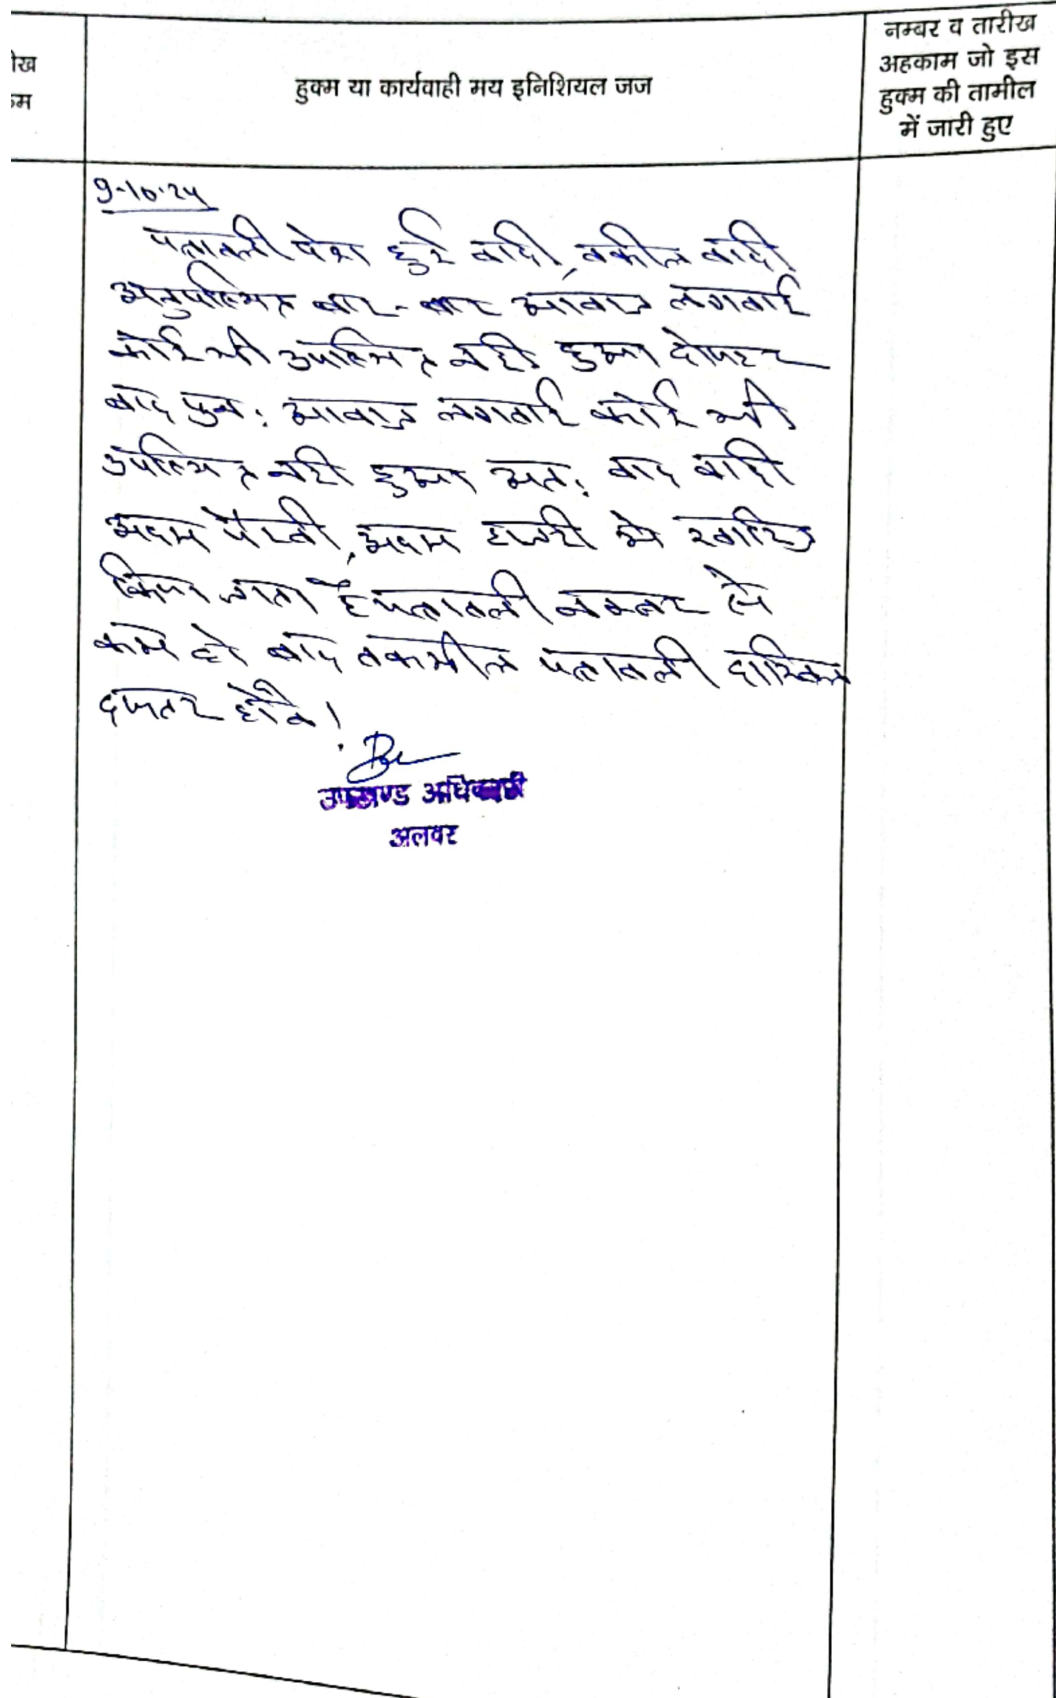 ीख
कम
हुक्म या कार्यवाही मय इनिशियल जज
नम्बर व तारीख
अहकाम जो इस
हुक्म की तामील
में जारी हुए
9-10-24
पत्रावली पेश हुई वादी, वकील वादी
अनुपस्थित बार-बार आवाज लगवाई
कोई भी उपस्थित नही हुआ दोपहर
बाद पुन: आवाज लगवाई कोई भी
उपस्थित नही हुआ अत: वाद वादी
अदम पैरवी, अदम हाजरी मे खारिज
किया जाता है पत्रावली नम्बर से
कम हो बाद तकमील पत्रावली दाखिल
दफ्तर होवे।
उपखण्ड अधिकारी
अलवर